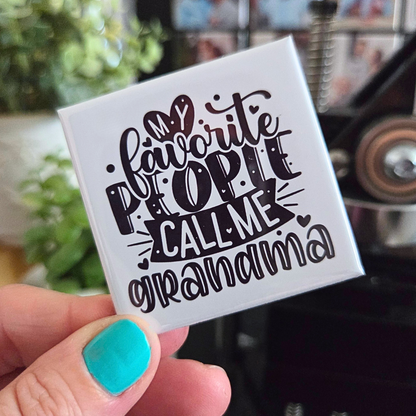 MY
favorite
PEOPLE
CALL ME
grandma